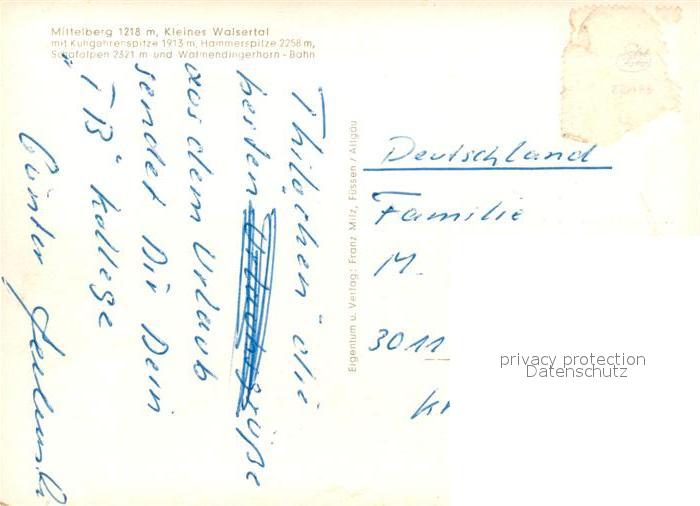 Mittelberg 1218 m, Kleines Walsertal
mit Kuhgehrenspitze 1913 m, Hammerspitze 2258 m,
Schafalpen 2321 m und Walmendingerhorn - Bahn
Eigentum u. Verlag: Franz Milz, Füssen / Allgäu
Thilochen" die
besten grüße
aus dem Urlaub
sendet Dir Dein
"TB" Kollege
Günter
Deutschland
Familie
M.
3011
Kr
privacy protection
Datenschutz